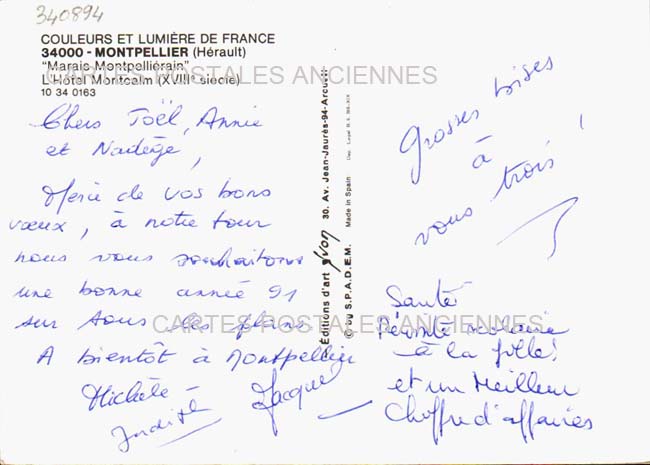 340894
COULEURS ET LUMIÈRE DE FRANCE
34000 - MONTPELLIER (Hérault)
"Marais Montpelliérain"
L'Hôtel Montcalm (XVIIIe siècle)
10 34 0163
CARTES POSTALES ANCIENNES
Chers Joël, Annie
et Nadège,
Merci de vos bons
vœux, à notre tour
nous vous souhaitons
une bonne année 91
sur tous les plans
CARTES POSTALES ANCIENNES
A bientôt à Montpellier
Michèle -
Judith
Jacques
Éditions d'art yvon 30, Av. Jean-Jaurès-94-Arcueil
© by S.P.A.D.E.M. Made in Spain
Grosses bises
à
vous trois !
Santé
scolaire
à la fille !
et un Meilleur
Chiffre d'affaires